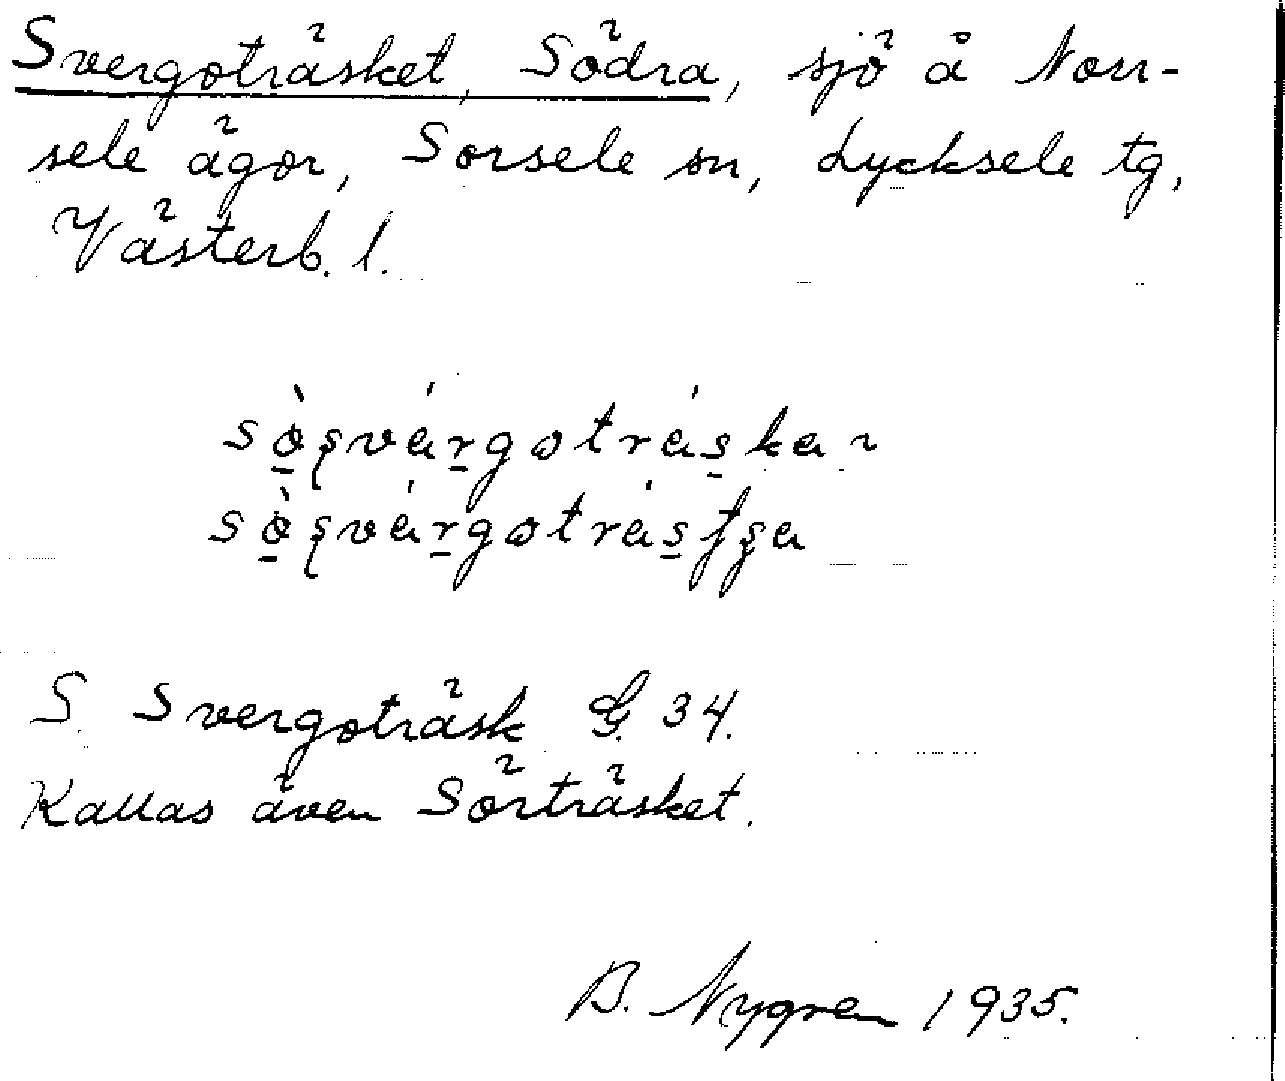 Svergoträsket, Södra, sjö å Norr-
sele ägor, Sorsele sn, Lycksele tg,
Västerb. l.
S. Svergoträsk G. 34.
Kallas även Sörträsket.
B. Nygren 1935.